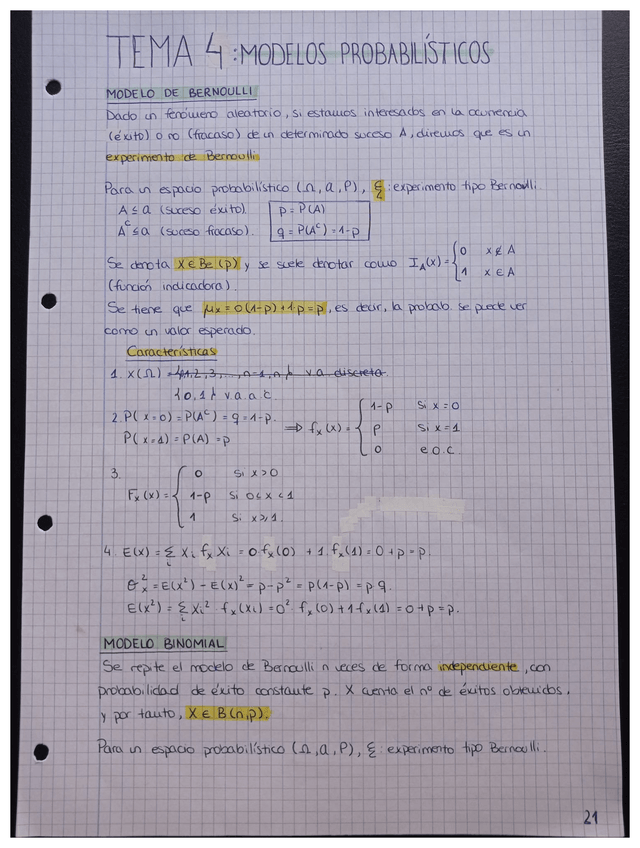 TEMA 4: MODELOS PROBABILÍSTICOS
MODELO DE BERNOULLI
Dado un fenómeno aleatorio, si estamos interesados en la ocurrencia
(éxito) o no (fracaso) de un determinado suceso A, diremos que es un
experimento de Bernoulli
Para un espacio probabilístico (Ω, a, P), ξ: experimento tipo Bernoulli.
A ≤ a (suceso éxito). p = P(A)
A^c ≤ a (suceso fracaso). q = P(A^c) = 1-p
Se denota X ∈ Be(p) y se suele denotar como I_A(x) = { 0 x ∉ A
1 x ∈ A
(función indicadora).
Se tiene que μx = 0(1-p)+1p = p, es decir, la probab. se puede ver
como un valor esperado.
Características
1. X(Ω) = {1,2,3,...,n-1,n} v.a discreta.
{0,1} v.a.a c.
2. P(x=0) = P(A^c) = q = 1-p.
P(x=1) = P(A) = p
⇒ f_x(x) = { 1-p si x=0
p si x=1
0 e.o.c.
3.
F_x(x) = { 0 si x>0
1-p si 0≤x<1
1 si x≥1.
4. E(x) = Σ_i x_i f_x x_i = 0 f_x(0) + 1 f_x(1) = 0+p = p.
σ_x^2 = E(x²) - E(x)² = p-p² = p(1-p) = p q.
E(x²) = Σ_i x_i² f_x(x_i) = 0² f_x(0) + 1 f_x(1) = 0+p = p.
MODELO BINOMIAL
Se repite el modelo de Bernoulli n veces de forma independiente, con
probabilidad de éxito constante p. X cuenta el nº de éxitos obtenidos,
y por tanto, X ∈ B(n,p).
Para un espacio probabilístico (Ω, a, P), ξ: experimento tipo Bernoulli.
21